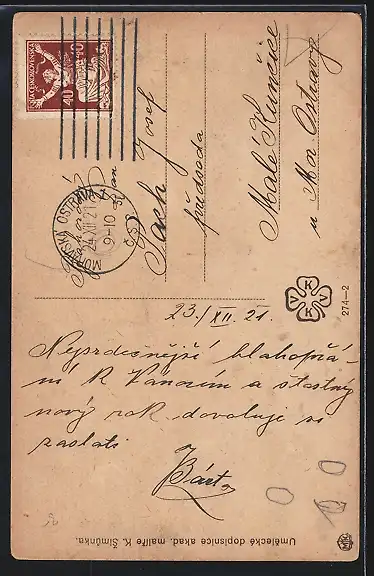 POŠTA ČESKOSLOVENSKÁ
40 40
MORAVSKÁ OSTRAVA
24.XII.21
9-10
ČS
Pan
Josef
Pach
předseda
Malé Kunčice
u Mor. Ostravy
V K K V
274—2
23./XII. 21.
Nejsrdečnější blahopřá-
ní k Vánocům a šťastný
nový rok dovoluje si
zaslati
Bárta
Umělecké dopisnice akad. malíře K. Šimůnka.